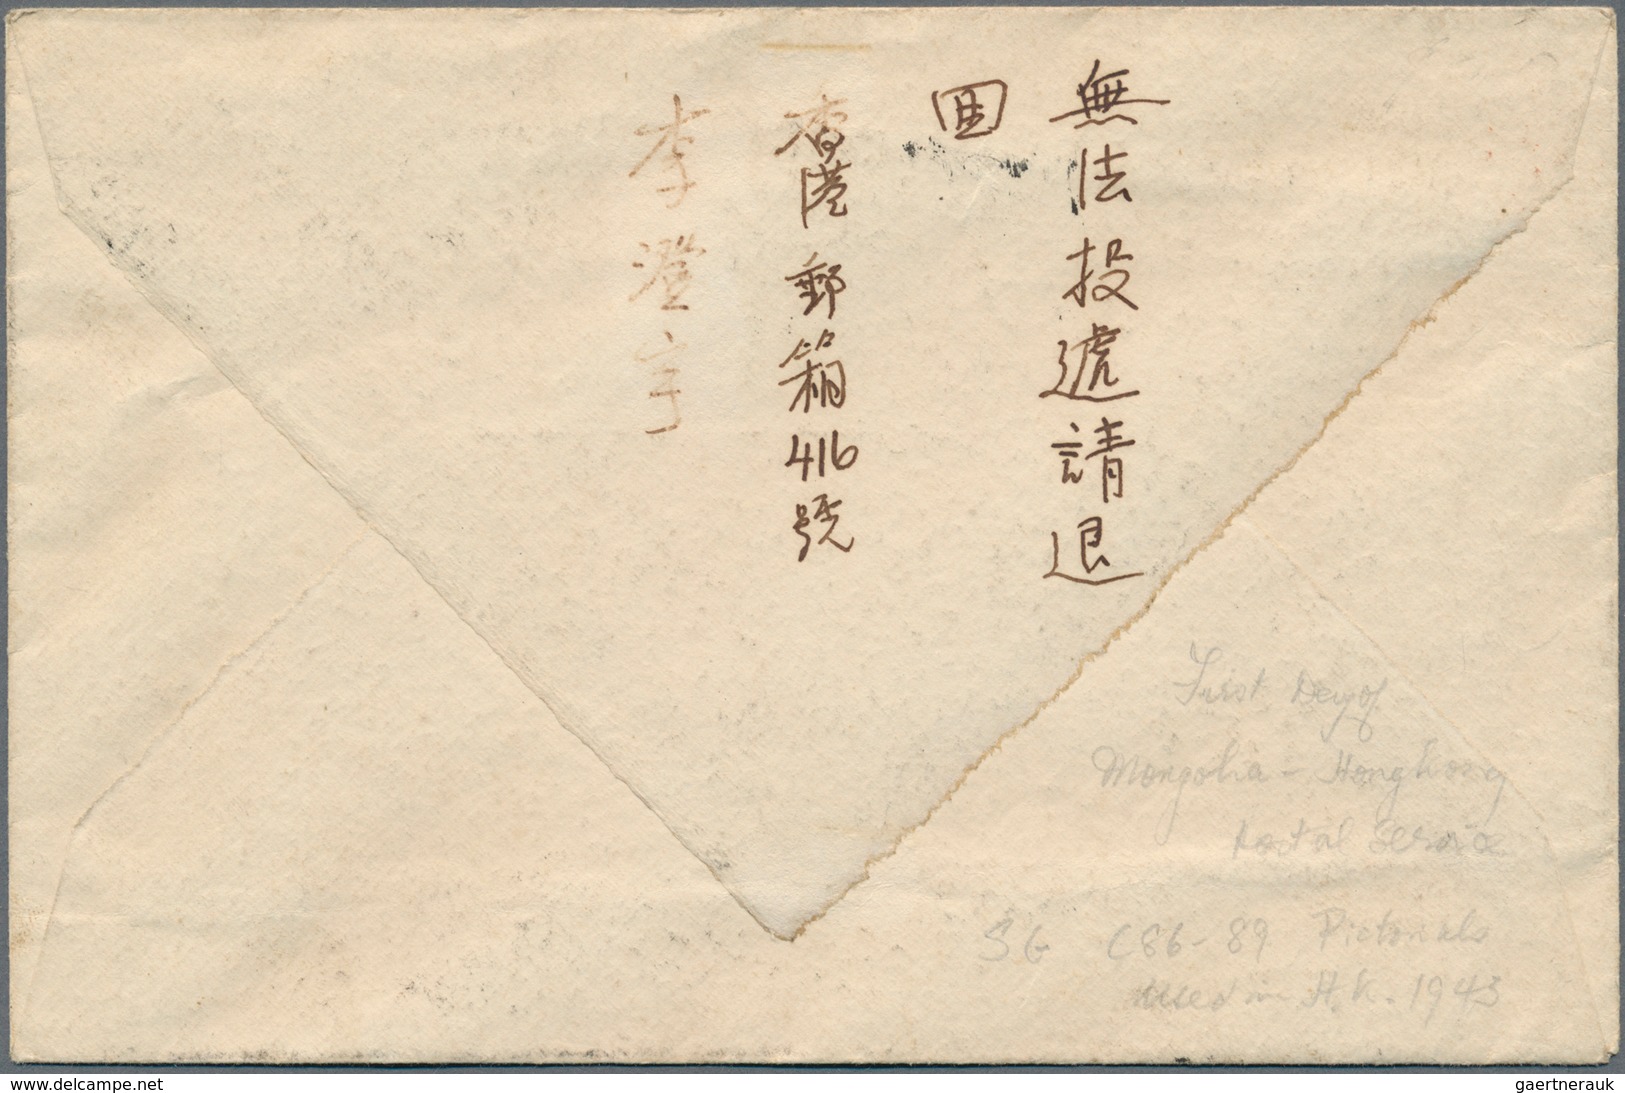 無法投遞請退
回
香港郵箱416號
李澄宇
First Day of
Mongolia - Hongkong
Postal Service
SG C86-89 Pictorials
Used in H.K. 1943
delcampe.net
gaertnerauk